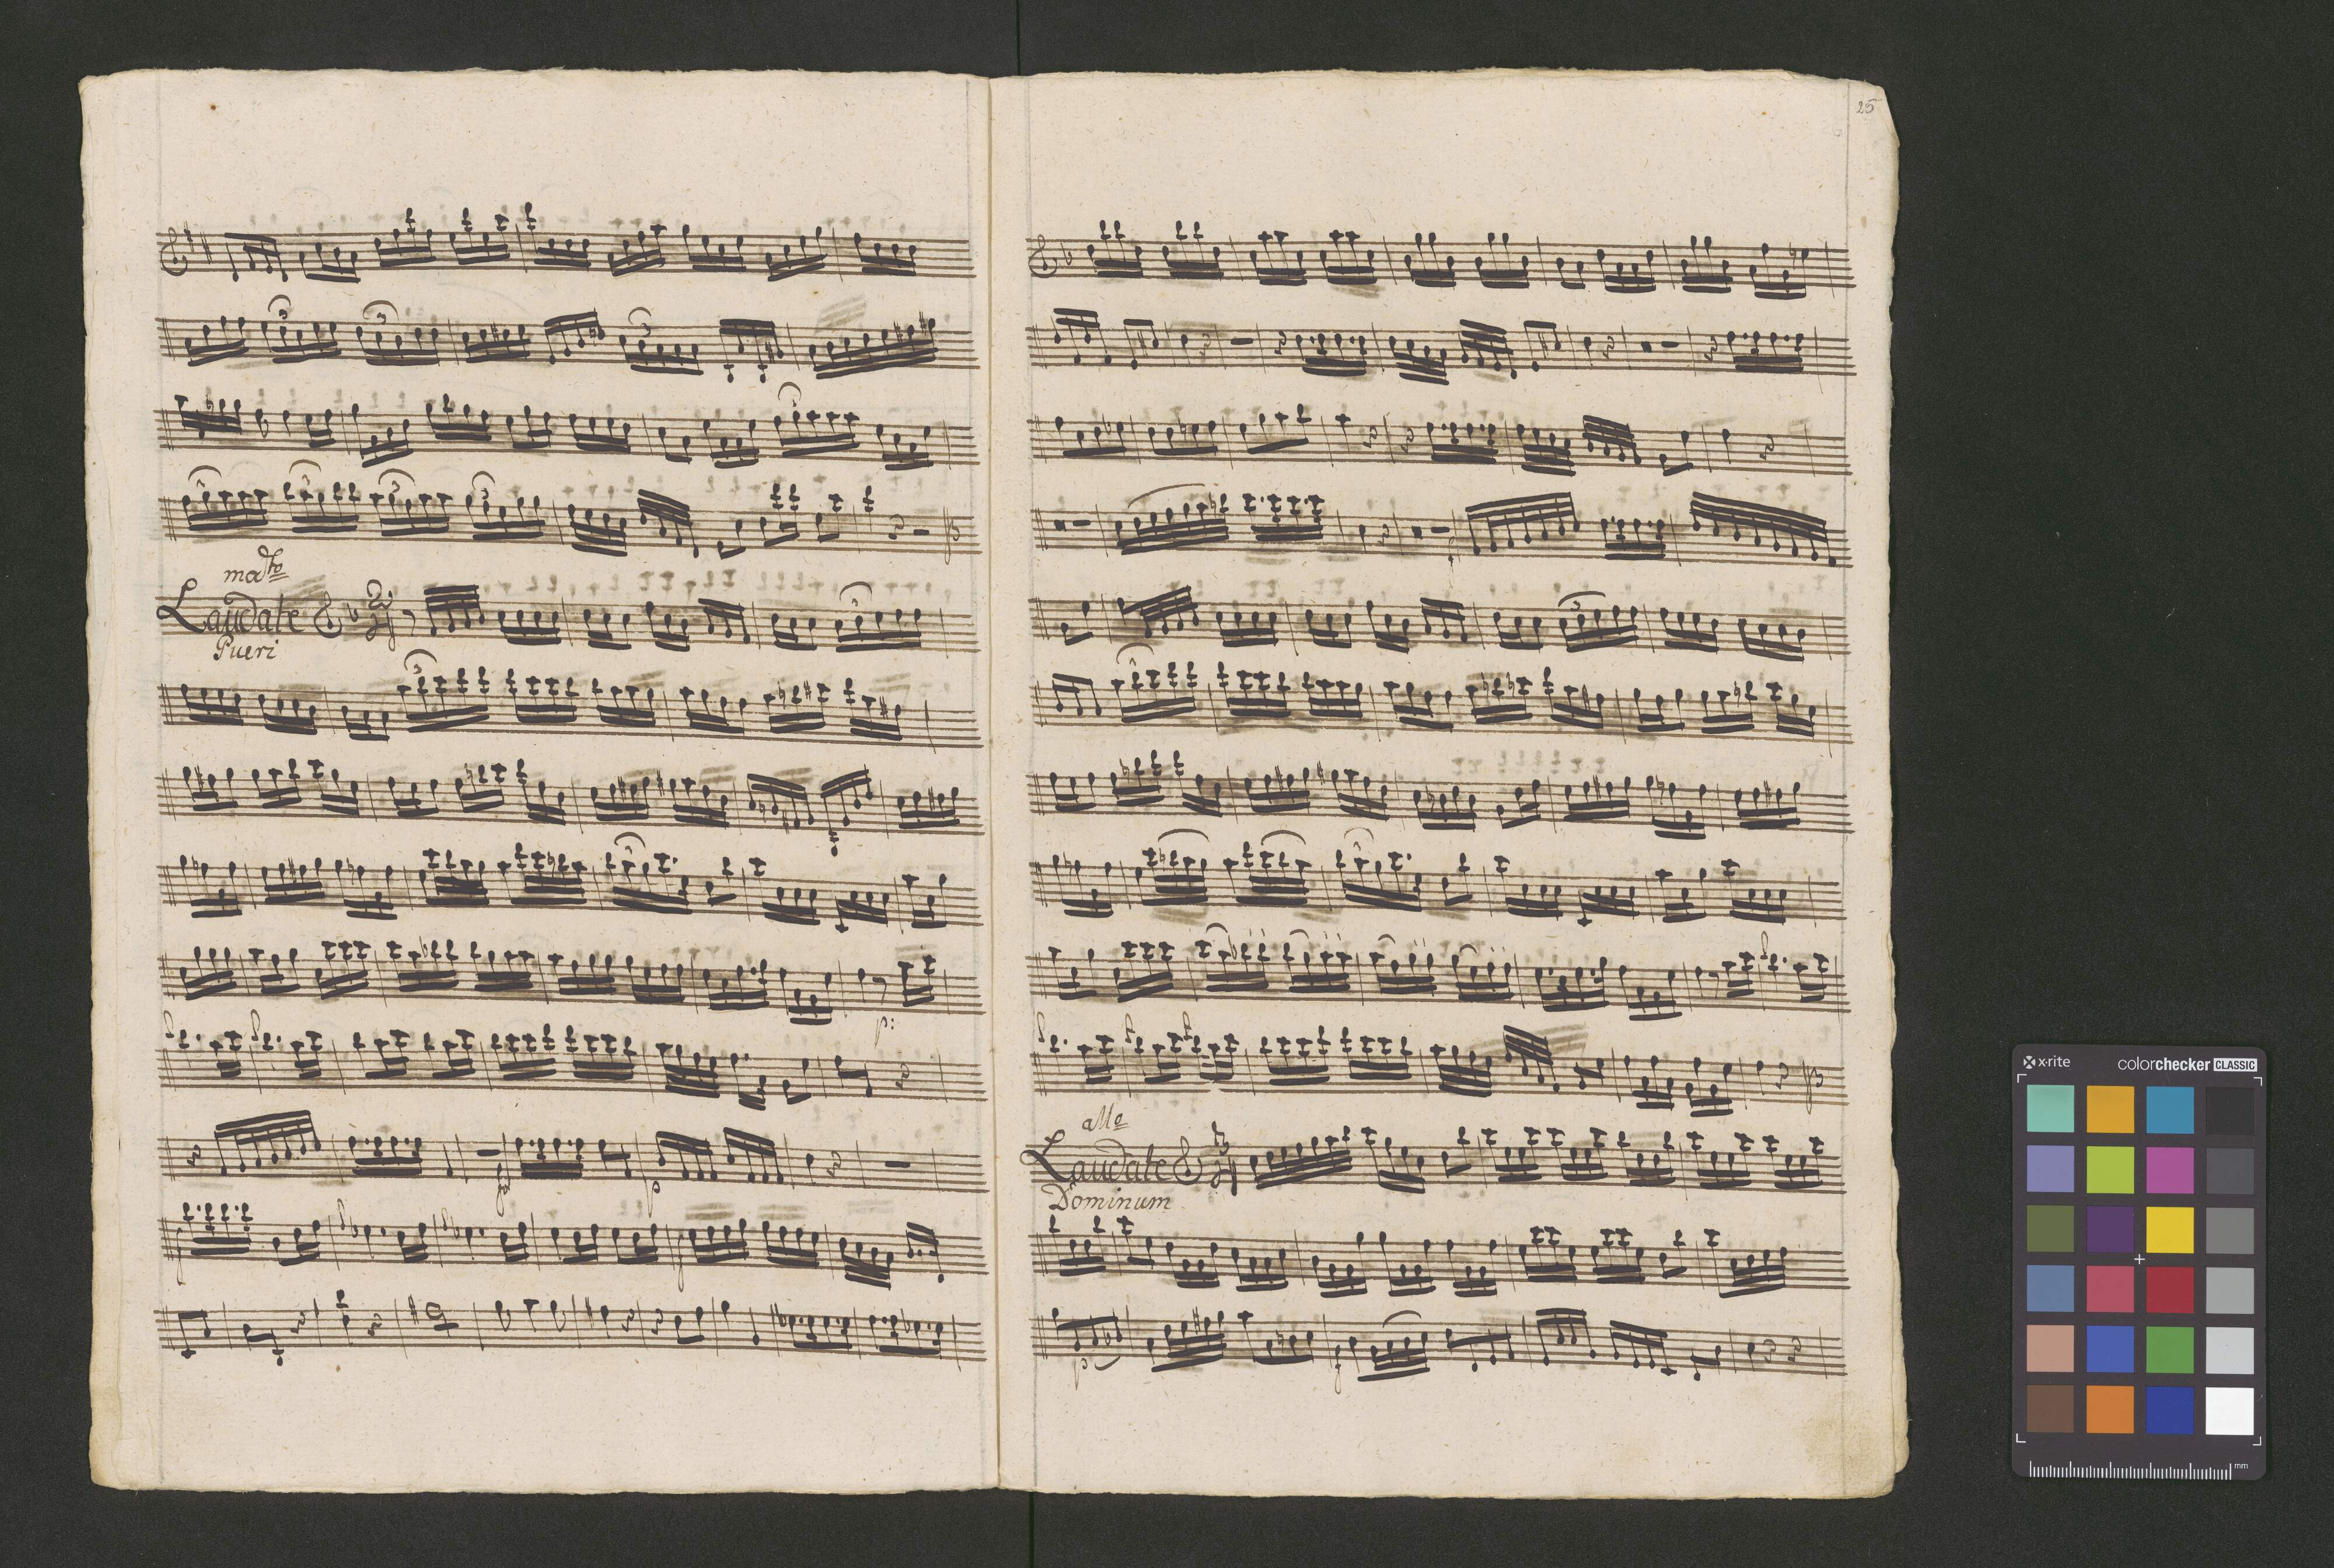 mod.to
Laudate
Pueri
p:
p
25
all.o
Laudate
Dominum
p
x-rite
colorchecker CLASSIC
mm